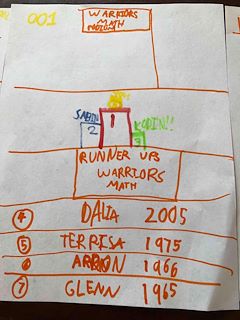 001
WARRIORS
MATH
PODIUM
SABIN
2
1
KORIN!!
3
RUNNER UPS
WARRIORS
MATH
4 DALIA 2005
5 TERRISA 1975
6 ARRON 1966
7 GLENN 1965